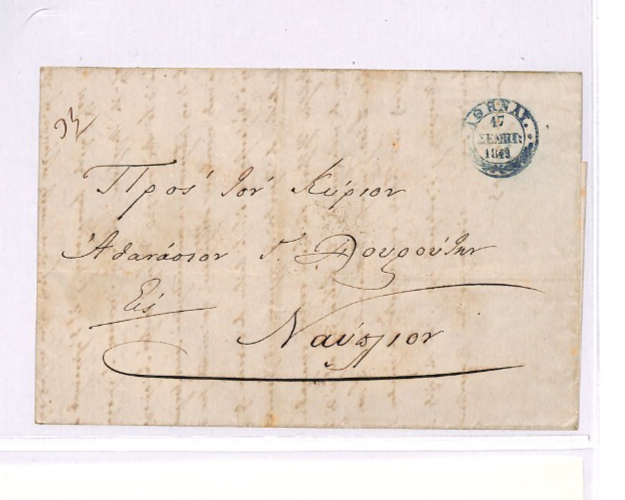 ΑΘΗΝΑΙ.
17
ΣΕΠΤ:
1849
Πρός τόν Κύριον
Ἀθανάσιον Γ. Δουρούτην
Εἰς
Ναύπλιον